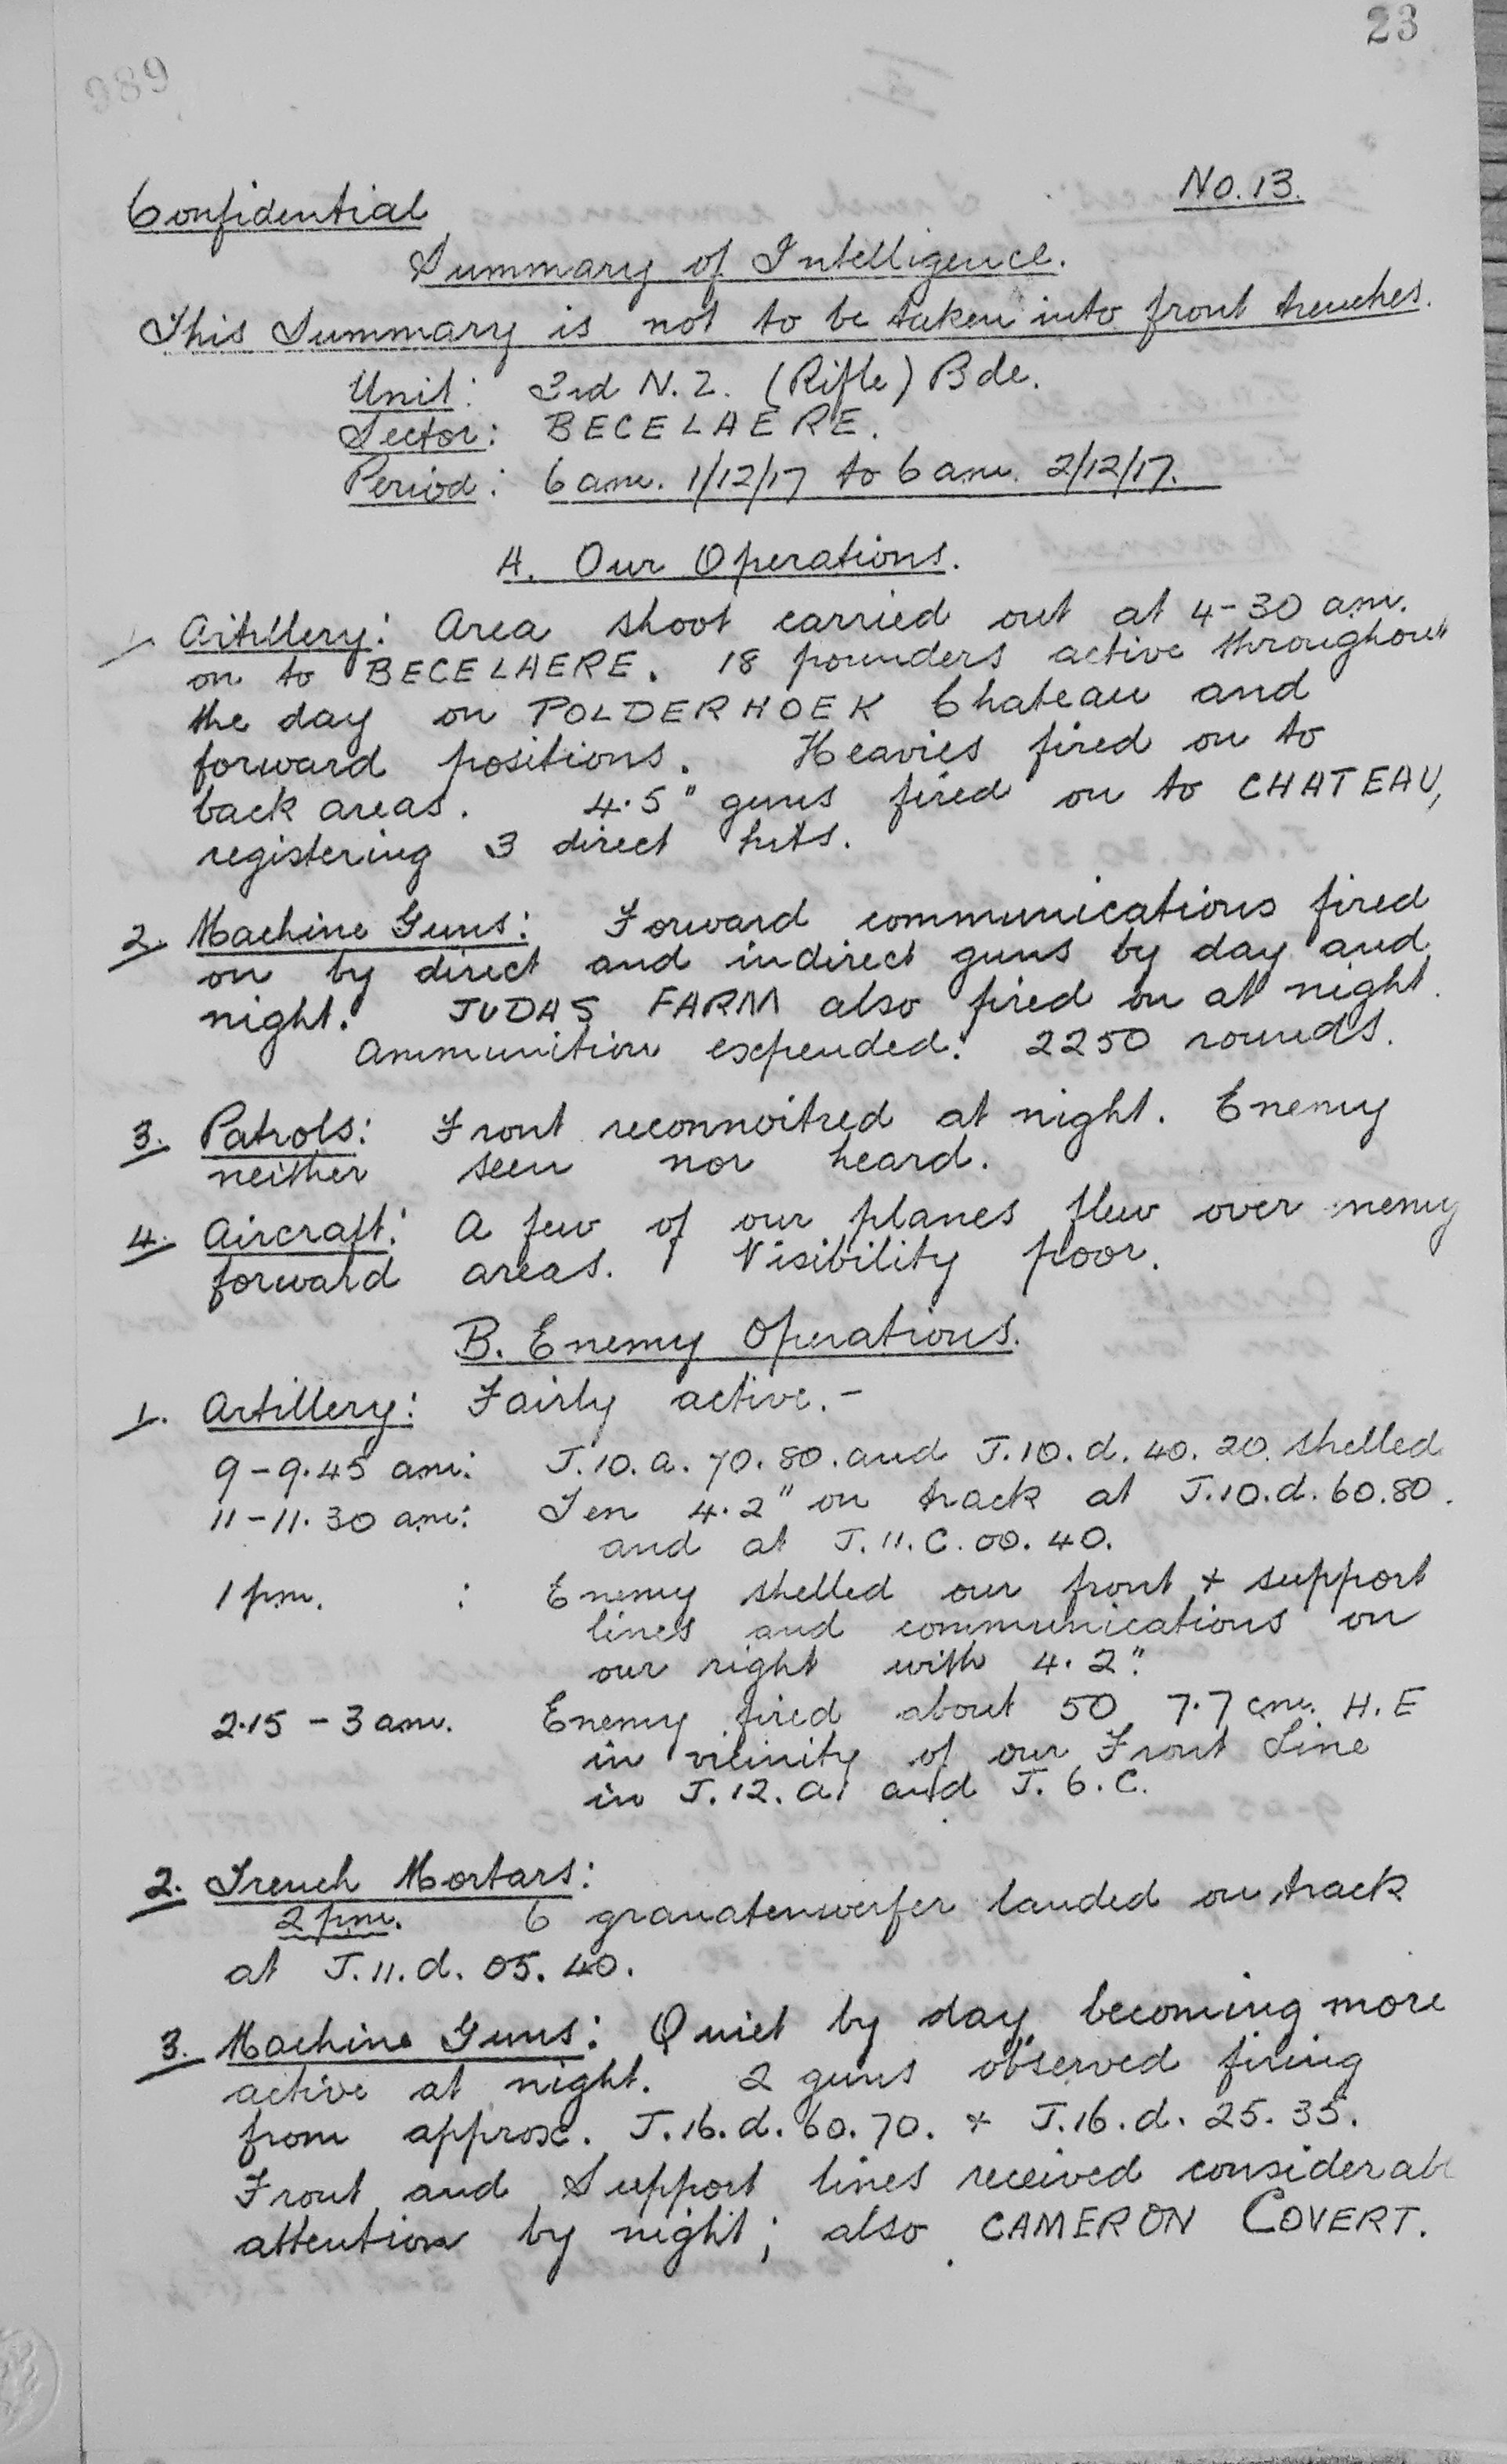 23
989
No. 13.
Confidential
Summary of Intelligence.
This Summary is not to be taken into front trenches.
Unit: 3rd N.Z. (Rifle) Bde.
Sector: BECELAERE.
Period: 6 am. 1/12/17 to 6 am. 2/12/17.
A. Our Operations.
1. Artillery: Area shoot carried out at 4-30 am.
on to BECELAERE. 18 pounders active throughout
the day on POLDERHOEK Chateau and
forward positions. Heavies fired on to
back areas. 4.5" guns fired on to CHATEAU,
registering 3 direct hits.
2. Machine Guns: Forward communications fired
on by direct and indirect guns by day and
night. JUDAS FARM also fired on at night.
Ammunition expended: 2250 rounds.
3. Patrols: Front reconnoitred at night. Enemy
neither seen nor heard.
4. Aircraft: A few of our planes flew over enemy
forward areas. Visibility poor.
B. Enemy Operations.
1. Artillery: Fairly active. -
9-9.45 am: J.10.a.70.80. and J.10.d.40.20. shelled
11-11.30 am: Ten 4.2" on track at J.10.d.60.80.
and at J.11.C.00.40.
1 pm. : Enemy shelled our front + support
lines and communications on
our right with 4.2".
2.15 - 3 am. Enemy fired about 50 7.7 cm. H.E
in vicinity of our Front Line
in J.12.a. and J.6.C.
2. Trench Mortars:
2 pm. 6 granatenwerfer landed on track
at J.11.d.05.40.
3. Machine Guns: Quiet by day, becoming more
active at night. 2 guns observed firing
from approx. J.16.d.60.70. + J.16.d.25.35.
Front and Support lines received considerabl
attention by night; also CAMERON COVERT.